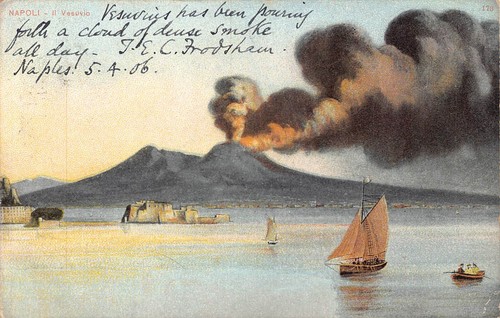 NAPOLI - Il Vesuvio
Vesuvius has been pouring
forth a cloud of dense smoke
all day - T. E. C. Frodsham.
Naples. 5.4.06.